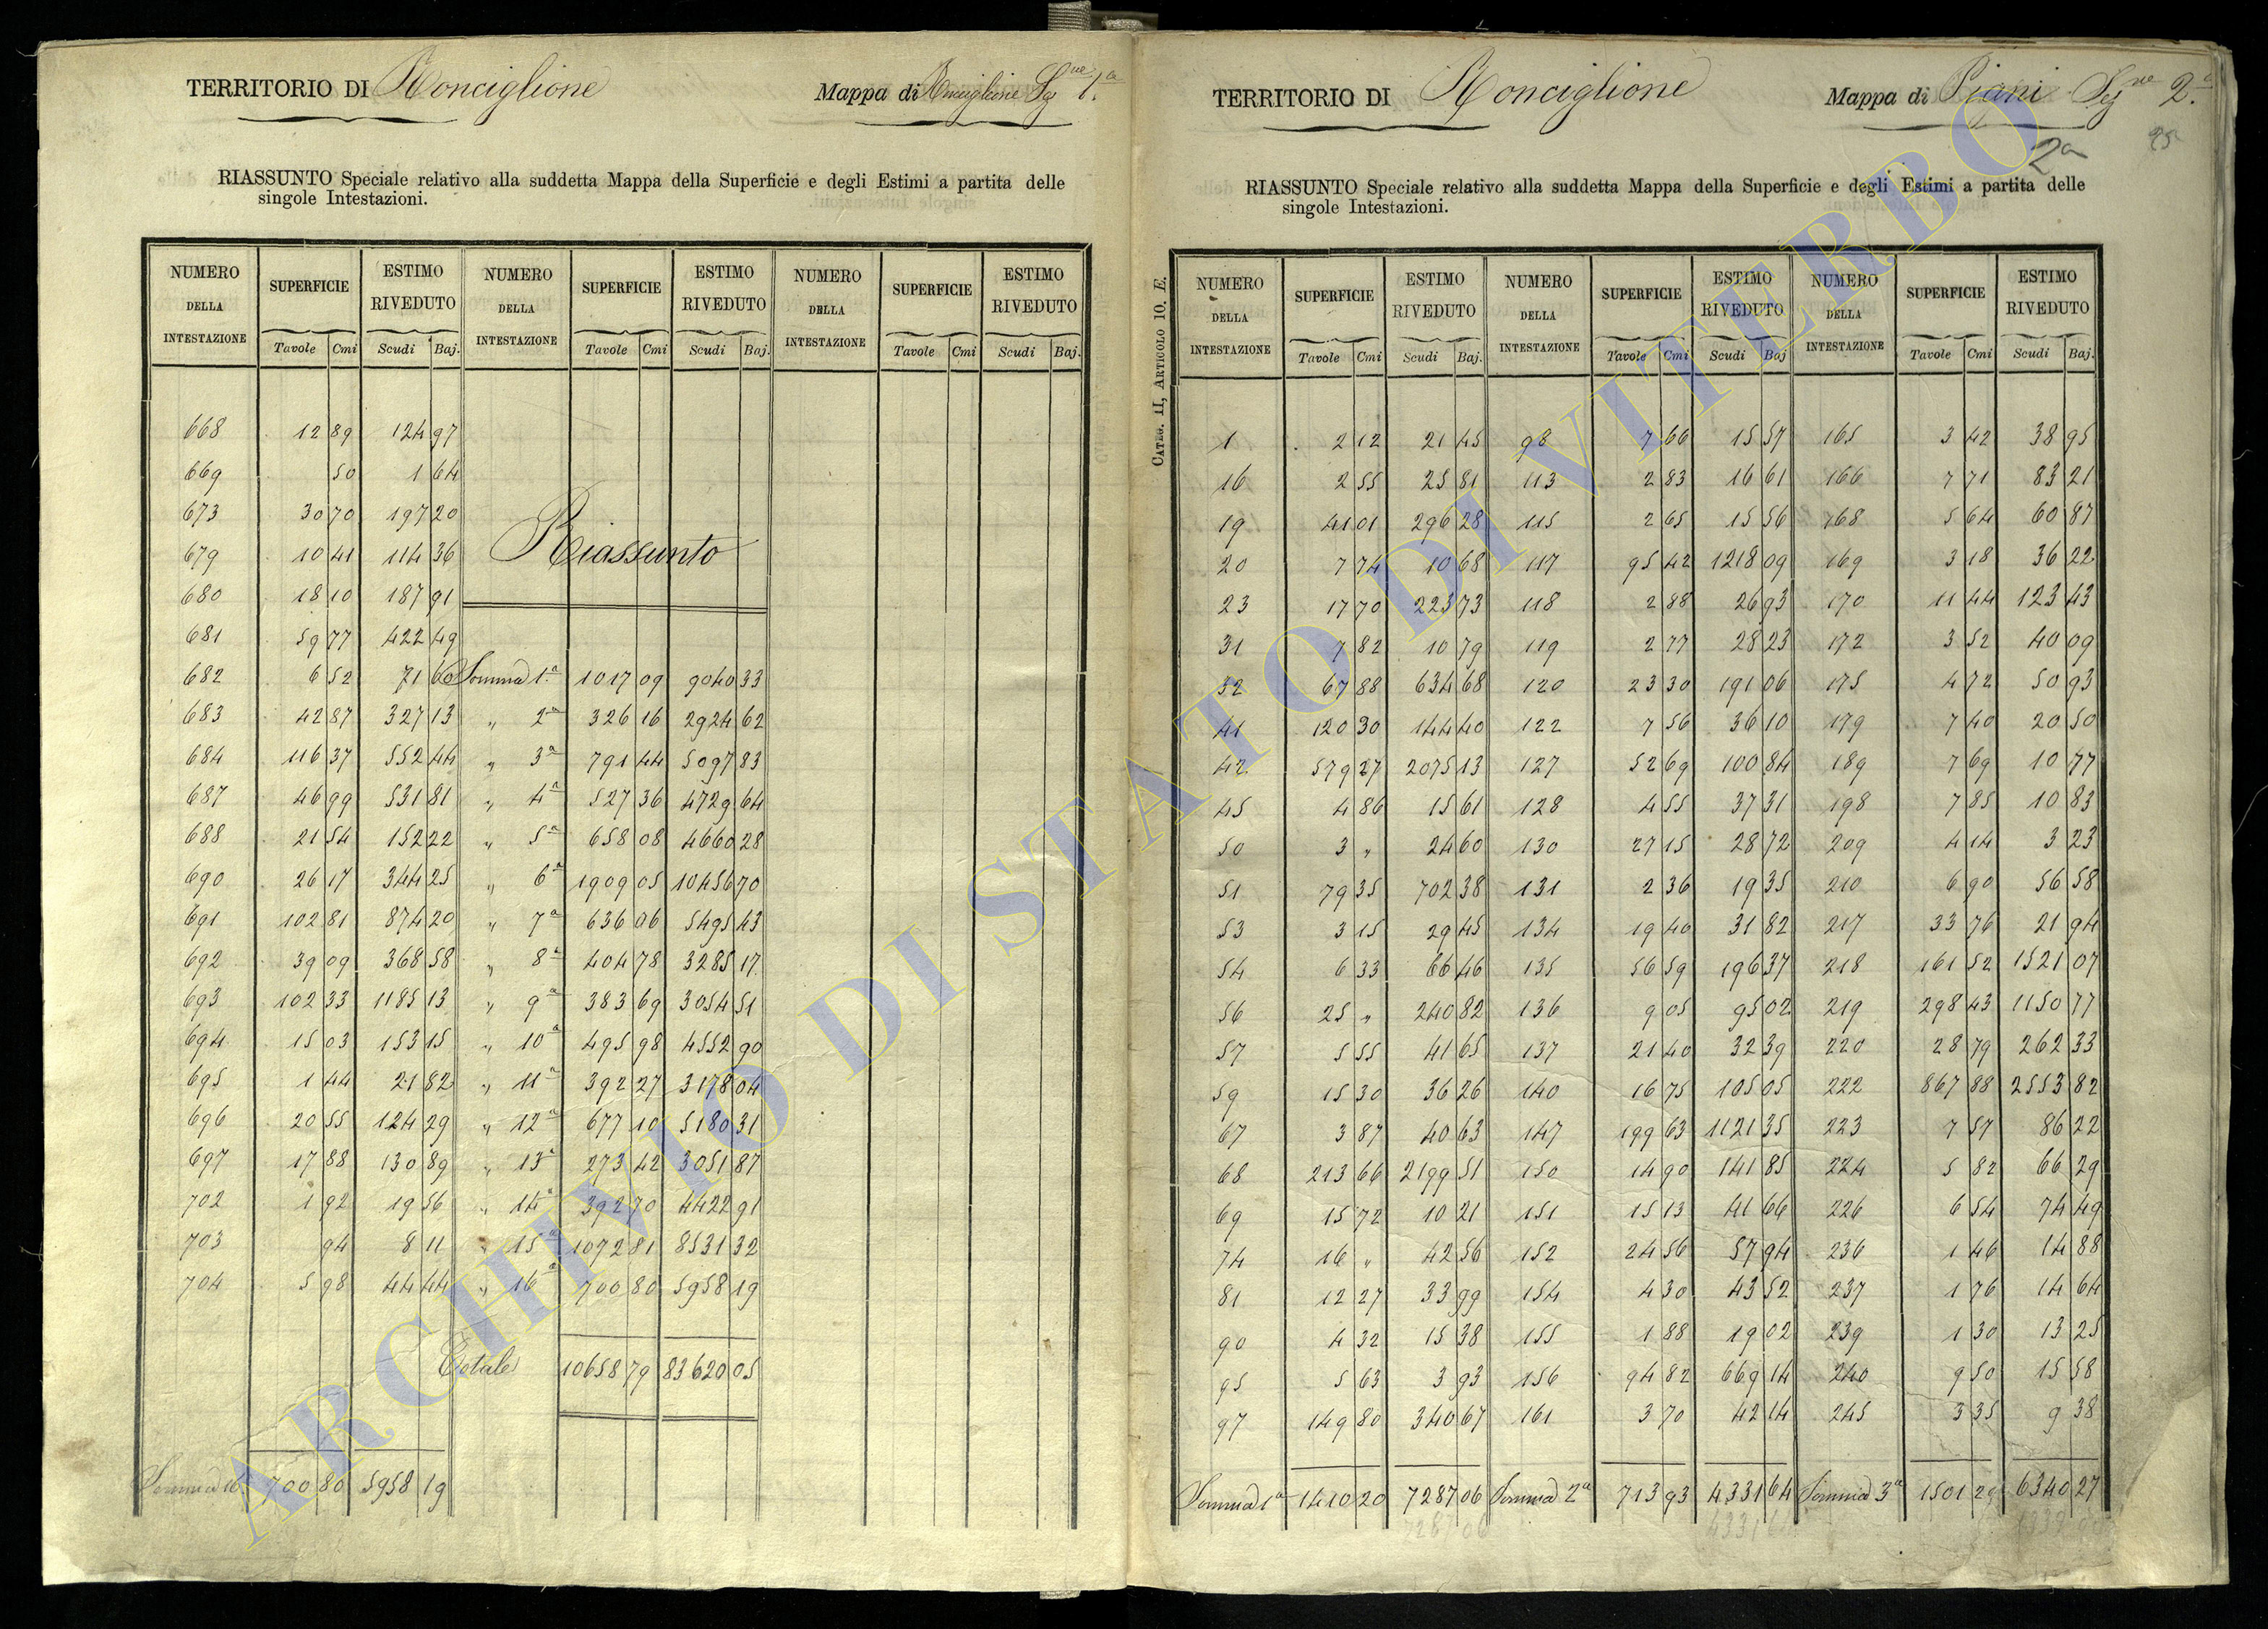 TERRITORIO DI Ronciglione Mappa di Ronciglione Sez.ne 1.a
RIASSUNTO Speciale relativo alla suddetta Mappa della Superficie e degli Estimi a partita delle
singole Intestazioni.
NUMERO DELLA INTESTAZIONE SUPERFICIE ESTIMO RIVEDUTO NUMERO DELLA INTESTAZIONE SUPERFICIE ESTIMO RIVEDUTO NUMERO DELLA INTESTAZIONE SUPERFICIE ESTIMO RIVEDUTO
Tavole Cmi Scudi Baj. Tavole Cmi Scudi Baj. Tavole Cmi Scudi Baj.
668 12 89 124 97
669 50 1 64
673 30 70 197 20
679 10 41 114 36
Riassunto
680 18 10 187 91
681 59 77 422 49
682 6 52 71 60 Somma 1.a 1017 09 9040 33
683 42 87 327 13 " 2a 326 16 2924 62
684 116 37 552 44 " 3a 791 44 5097 83
687 46 99 531 81 " 4a 527 36 4729 64
688 21 54 152 22 " 5a 658 08 4660 28
690 26 17 344 25 " 6a 1909 05 10456 70
691 102 81 874 20 " 7a 636 06 5495 43
692 39 09 368 58 " 8a 404 78 3285 17
693 102 33 1185 13 " 9a 383 69 3054 51
694 15 03 153 15 " 10a 495 98 4552 90
695 1 44 21 82 " 11a 392 27 3178 04
696 20 55 124 29 " 12a 677 10 5180 31
697 17 88 130 89 " 13a 273 42 3051 87
702 1 92 19 56 " 14a 392 70 4422 91
703 94 8 11 " 15a 1072 81 8531 32
704 5 98 44 44 " 16a 700 80 5958 19
Totale 10658 79 83620 05
Somma 16 700 80 5958 19
TERRITORIO DI Ronciglione Mappa di Piani Sez.ne 2.a
2a
RIASSUNTO Speciale relativo alla suddetta Mappa della Superficie e degli Estimi a partita delle
singole Intestazioni.
CATEG. II, ARTICOLO 10. E.
NUMERO DELLA INTESTAZIONE SUPERFICIE ESTIMO RIVEDUTO NUMERO DELLA INTESTAZIONE SUPERFICIE ESTIMO RIVEDUTO NUMERO DELLA INTESTAZIONE SUPERFICIE ESTIMO RIVEDUTO
Tavole Cmi Scudi Baj. Tavole Cmi Scudi Baj Tavole Cmi Scudi Baj.
1 2 12 21 45 98 7 66 15 57 165 3 42 38 95
16 2 55 25 81 113 2 83 16 61 166 7 71 83 21
19 41 01 296 28 115 2 65 15 56 168 5 64 60 87
20 7 74 10 68 117 95 42 1218 09 169 3 18 36 22
23 17 70 223 73 118 2 88 26 93 170 11 44 123 43
31 7 82 10 79 119 2 77 28 23 172 3 52 40 09
32 67 88 634 68 120 23 30 191 06 175 4 72 50 93
41 120 30 144 40 122 7 56 36 10 179 7 40 20 50
42 579 27 2075 13 127 52 69 100 84 189 7 69 10 77
45 4 86 15 61 128 4 55 37 31 198 7 85 10 83
50 3 " 24 60 130 27 15 28 72 209 4 14 3 23
51 79 35 702 38 131 2 36 19 35 210 6 90 56 58
53 3 15 29 45 134 19 40 31 82 217 33 76 21 94
54 6 33 66 46 135 56 59 196 37 218 161 52 1521 07
56 25 " 240 82 136 9 05 95 02 219 298 43 1150 77
57 5 55 41 65 137 21 40 32 39 220 28 79 262 33
59 15 30 36 26 140 16 75 105 05 222 867 88 2553 82
67 3 87 40 63 147 199 63 1121 35 223 7 57 86 22
68 213 66 2199 51 150 14 90 141 85 224 5 82 66 29
69 15 72 10 21 151 15 13 41 66 226 6 54 74 49
74 16 " 42 56 152 24 56 57 94 236 1 46 14 88
81 12 27 33 99 154 4 30 43 52 237 1 76 14 64
90 4 32 15 38 155 1 88 19 02 239 1 30 13 25
95 5 63 3 93 156 94 82 669 14 240 9 50 15 58
97 149 80 340 67 161 3 70 42 14 245 3 35 9 38
Somma 1a 1410 20 7287 06 Somma 2a 713 93 4331 64 Somma 3a 1501 29 6340 27
7287 06 4331 64
ARCHIVIO DI STATO DI VITERBO